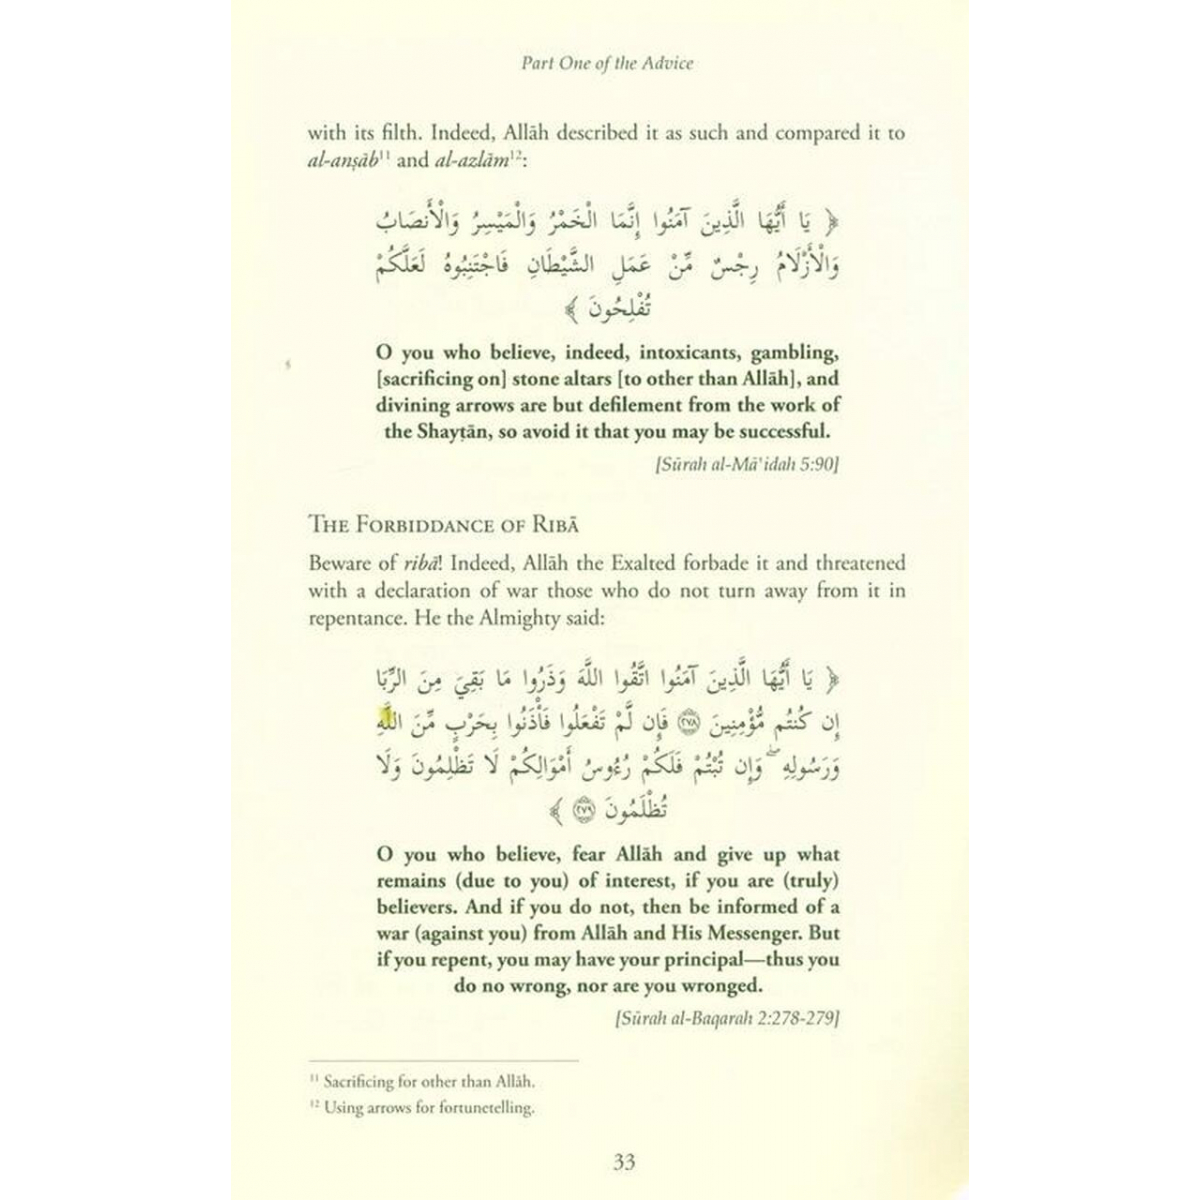 Part One of the Advice
with its filth. Indeed, Allāh described it as such and compared it to
al-anṣāb¹¹ and al-azlām¹²:
﴿ يَا أَيُّهَا الَّذِينَ آمَنُوا إِنَّمَا الْخَمْرُ وَالْمَيْسِرُ وَالْأَنصَابُ
وَالْأَزْلَامُ رِجْسٌ مِّنْ عَمَلِ الشَّيْطَانِ فَاجْتَنِبُوهُ لَعَلَّكُمْ
تُفْلِحُونَ ﴾
O you who believe, indeed, intoxicants, gambling,
[sacrificing on] stone altars [to other than Allāh], and
divining arrows are but defilement from the work of
the Shayṭān, so avoid it that you may be successful.
[Sūrah al-Mā'idah 5:90]
The Forbiddance of Ribā
Beware of ribā! Indeed, Allāh the Exalted forbade it and threatened
with a declaration of war those who do not turn away from it in
repentance. He the Almighty said:
﴿ يَا أَيُّهَا الَّذِينَ آمَنُوا اتَّقُوا اللَّهَ وَذَرُوا مَا بَقِيَ مِنَ الرِّبَا
إِن كُنتُم مُّؤْمِنِينَ ۝٢٧٨ فَإِن لَّمْ تَفْعَلُوا فَأْذَنُوا بِحَرْبٍ مِّنَ اللَّهِ
وَرَسُولِهِ ۖ وَإِن تُبْتُمْ فَلَكُمْ رُءُوسُ أَمْوَالِكُمْ لَا تَظْلِمُونَ وَلَا
تُظْلَمُونَ ۝٢٧٩ ﴾
O you who believe, fear Allāh and give up what
remains (due to you) of interest, if you are (truly)
believers. And if you do not, then be informed of a
war (against you) from Allāh and His Messenger. But
if you repent, you may have your principal—thus you
do no wrong, nor are you wronged.
[Sūrah al-Baqarah 2:278-279]
¹¹ Sacrificing for other than Allāh.
¹² Using arrows for fortunetelling.
33